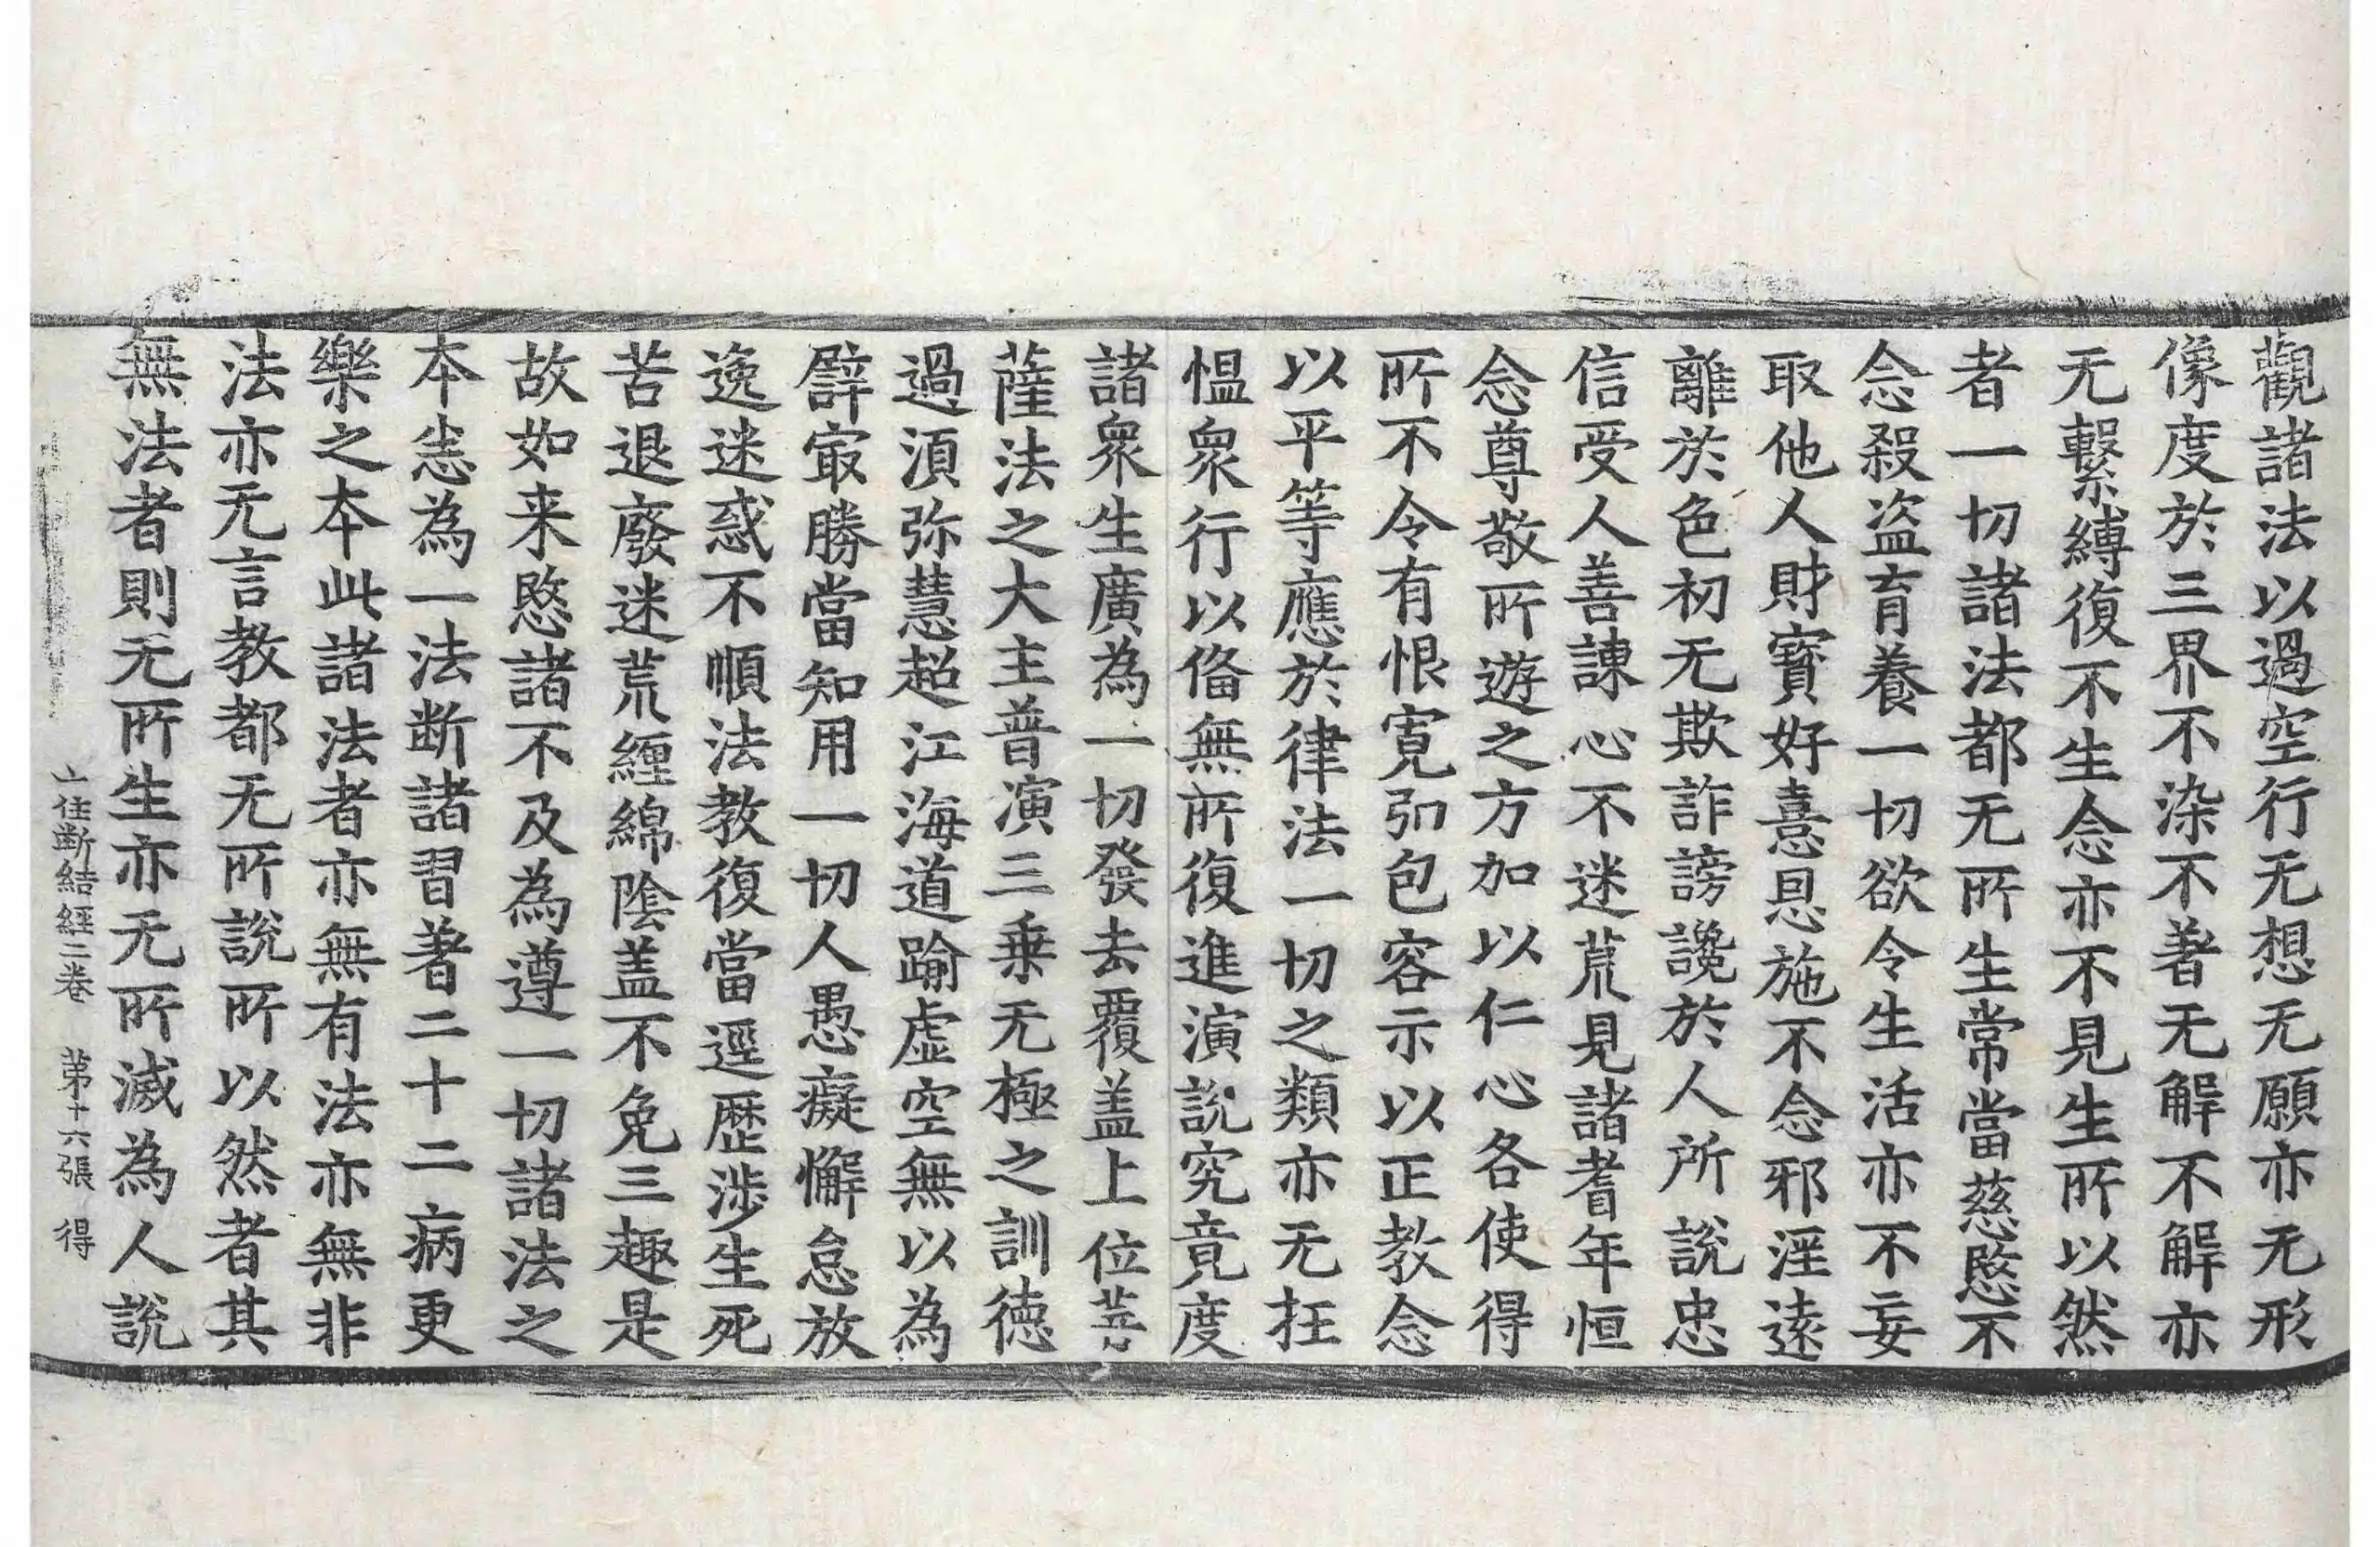 觀諸法以過空行无想无願亦无形
像度於三界不染不著无解不解亦
无繫縛復不生念亦不見生所以然
者一切諸法都无所生常當慈愍不
念殺盗育養一切欲令生活亦不妄
取他人財寳好憙恩施不念邪淫遠
離於色初无欺詐謗讒於人所說忠
信受人善諫心不迷荒見諸耆年恒
念尊敬所遊之方加以仁心各使得
所不令有恨寛弘包容示以正教念
以平等應於律法一切之類亦无抂
愠衆行以俻無所復進演說究竟度
諸衆生廣為一切發去覆盖上位菩
薩法之大主普演三乗无極之訓徳
過湏弥慧超江海道踰虚空無以為
辟冣勝當知用一切人愚癡懈怠放
逸迷惑不順法教復當逕歴渉生死
苦退廢迷荒纒綿陰盖不免三趣是
故如来愍諸不及為遵一切諸法之
本恙為一法断諸習著二十二病更
樂之本此諸法者亦無有法亦無非
法亦无言教都无所說所以然者其
無法者則无所生亦无所滅為人說
十住断結經二卷 苐十六張 得